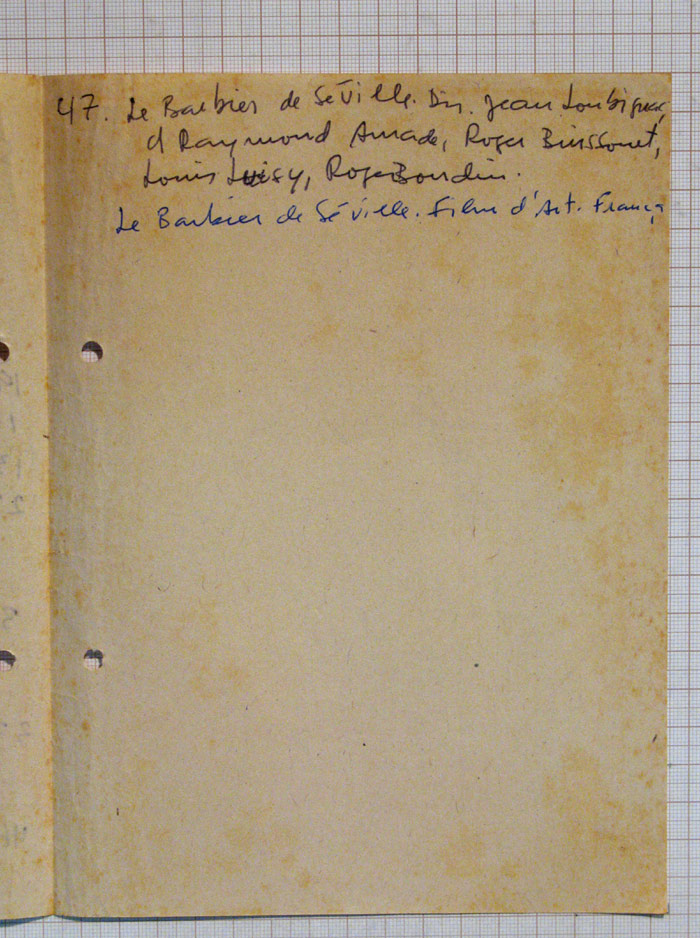 47. Le Barbier de Séville. Dir. Jean Loubignac
d Raymond Amade, Roger Bussonet,
Louis Luisy, Roger Bourdin.
Le Barbier de Séville. Filme d'Art. França